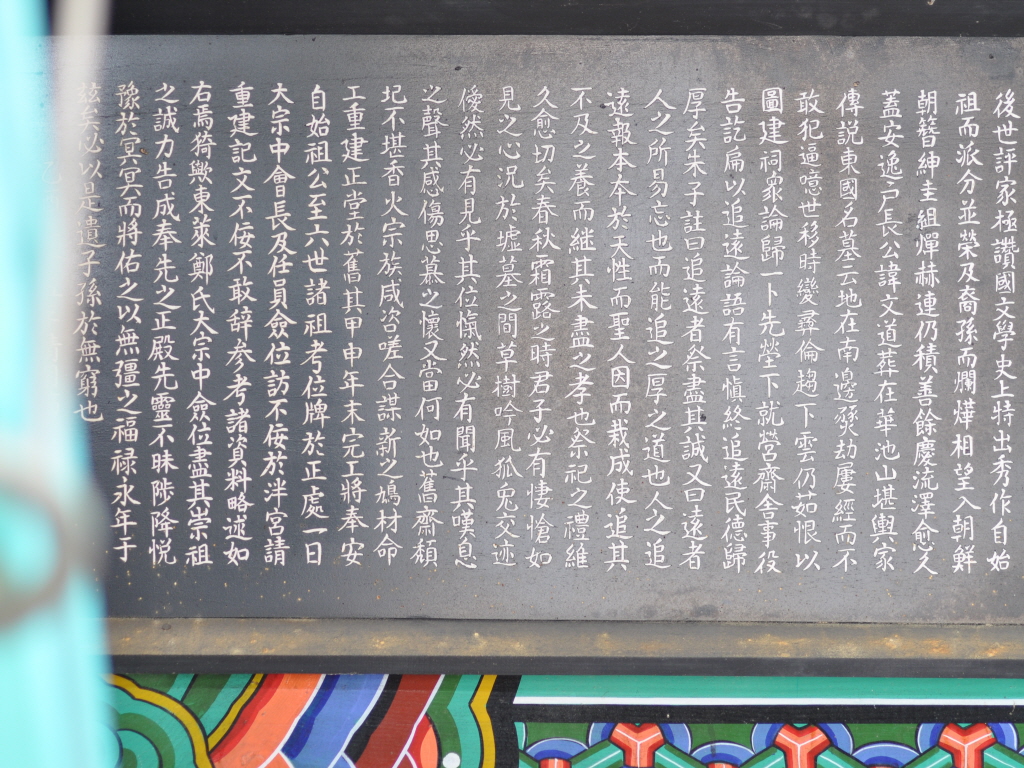 後世評家極讚國文學史上特出秀作自始
祖而派分並榮及裔孫而爛燁相望入朝鮮
朝簪紳圭組燀赫連仍積善餘慶流澤愈久
蓋安逸戶長公諱文道葬在華池山堪輿家
傳説東國名墓云地在南邊燹劫屢經而不
敢犯逼噫世移時變彛倫趨下雲仍茹恨以
圖建祠衆論歸一卜先塋下就營齋舍事役
告訖扁以追遠論語有言愼終追遠民德歸
厚矣朱子註曰追遠者祭盡其誠又曰遠者
人之所易忘也而能追之厚之道也人之追
遠報本本於天性而聖人因而栽成使追其
不及之養而継其未盡之孝也祭祀之禮維
久愈切矣春秋霜露之時君子必有悽愴如
見之心況於墟墓之間草樹吟風狐兎交迹
僾然必有見乎其位愾然必有聞乎其嘆息
之聲其感傷思慕之懷又當何如也舊齋頹
圮不堪香火宗族咸咨嗟合謀新之鳩材命
工重建正堂於舊其甲申年末完工將奉安
自始祖公至六世諸祖考位牌於正處一日
大宗中會長及任員僉位訪不佞於泮宮請
重建記文不佞不敢辞参考諸資料略述如
右焉猗歟東萊鄭氏大宗中僉位盡其崇祖
之誠力告成奉先之正殿先靈不昧陟降悅
豫於冥冥而將佑之以無彊之福禄永年于
玆矣必以是遺子孫於無窮也